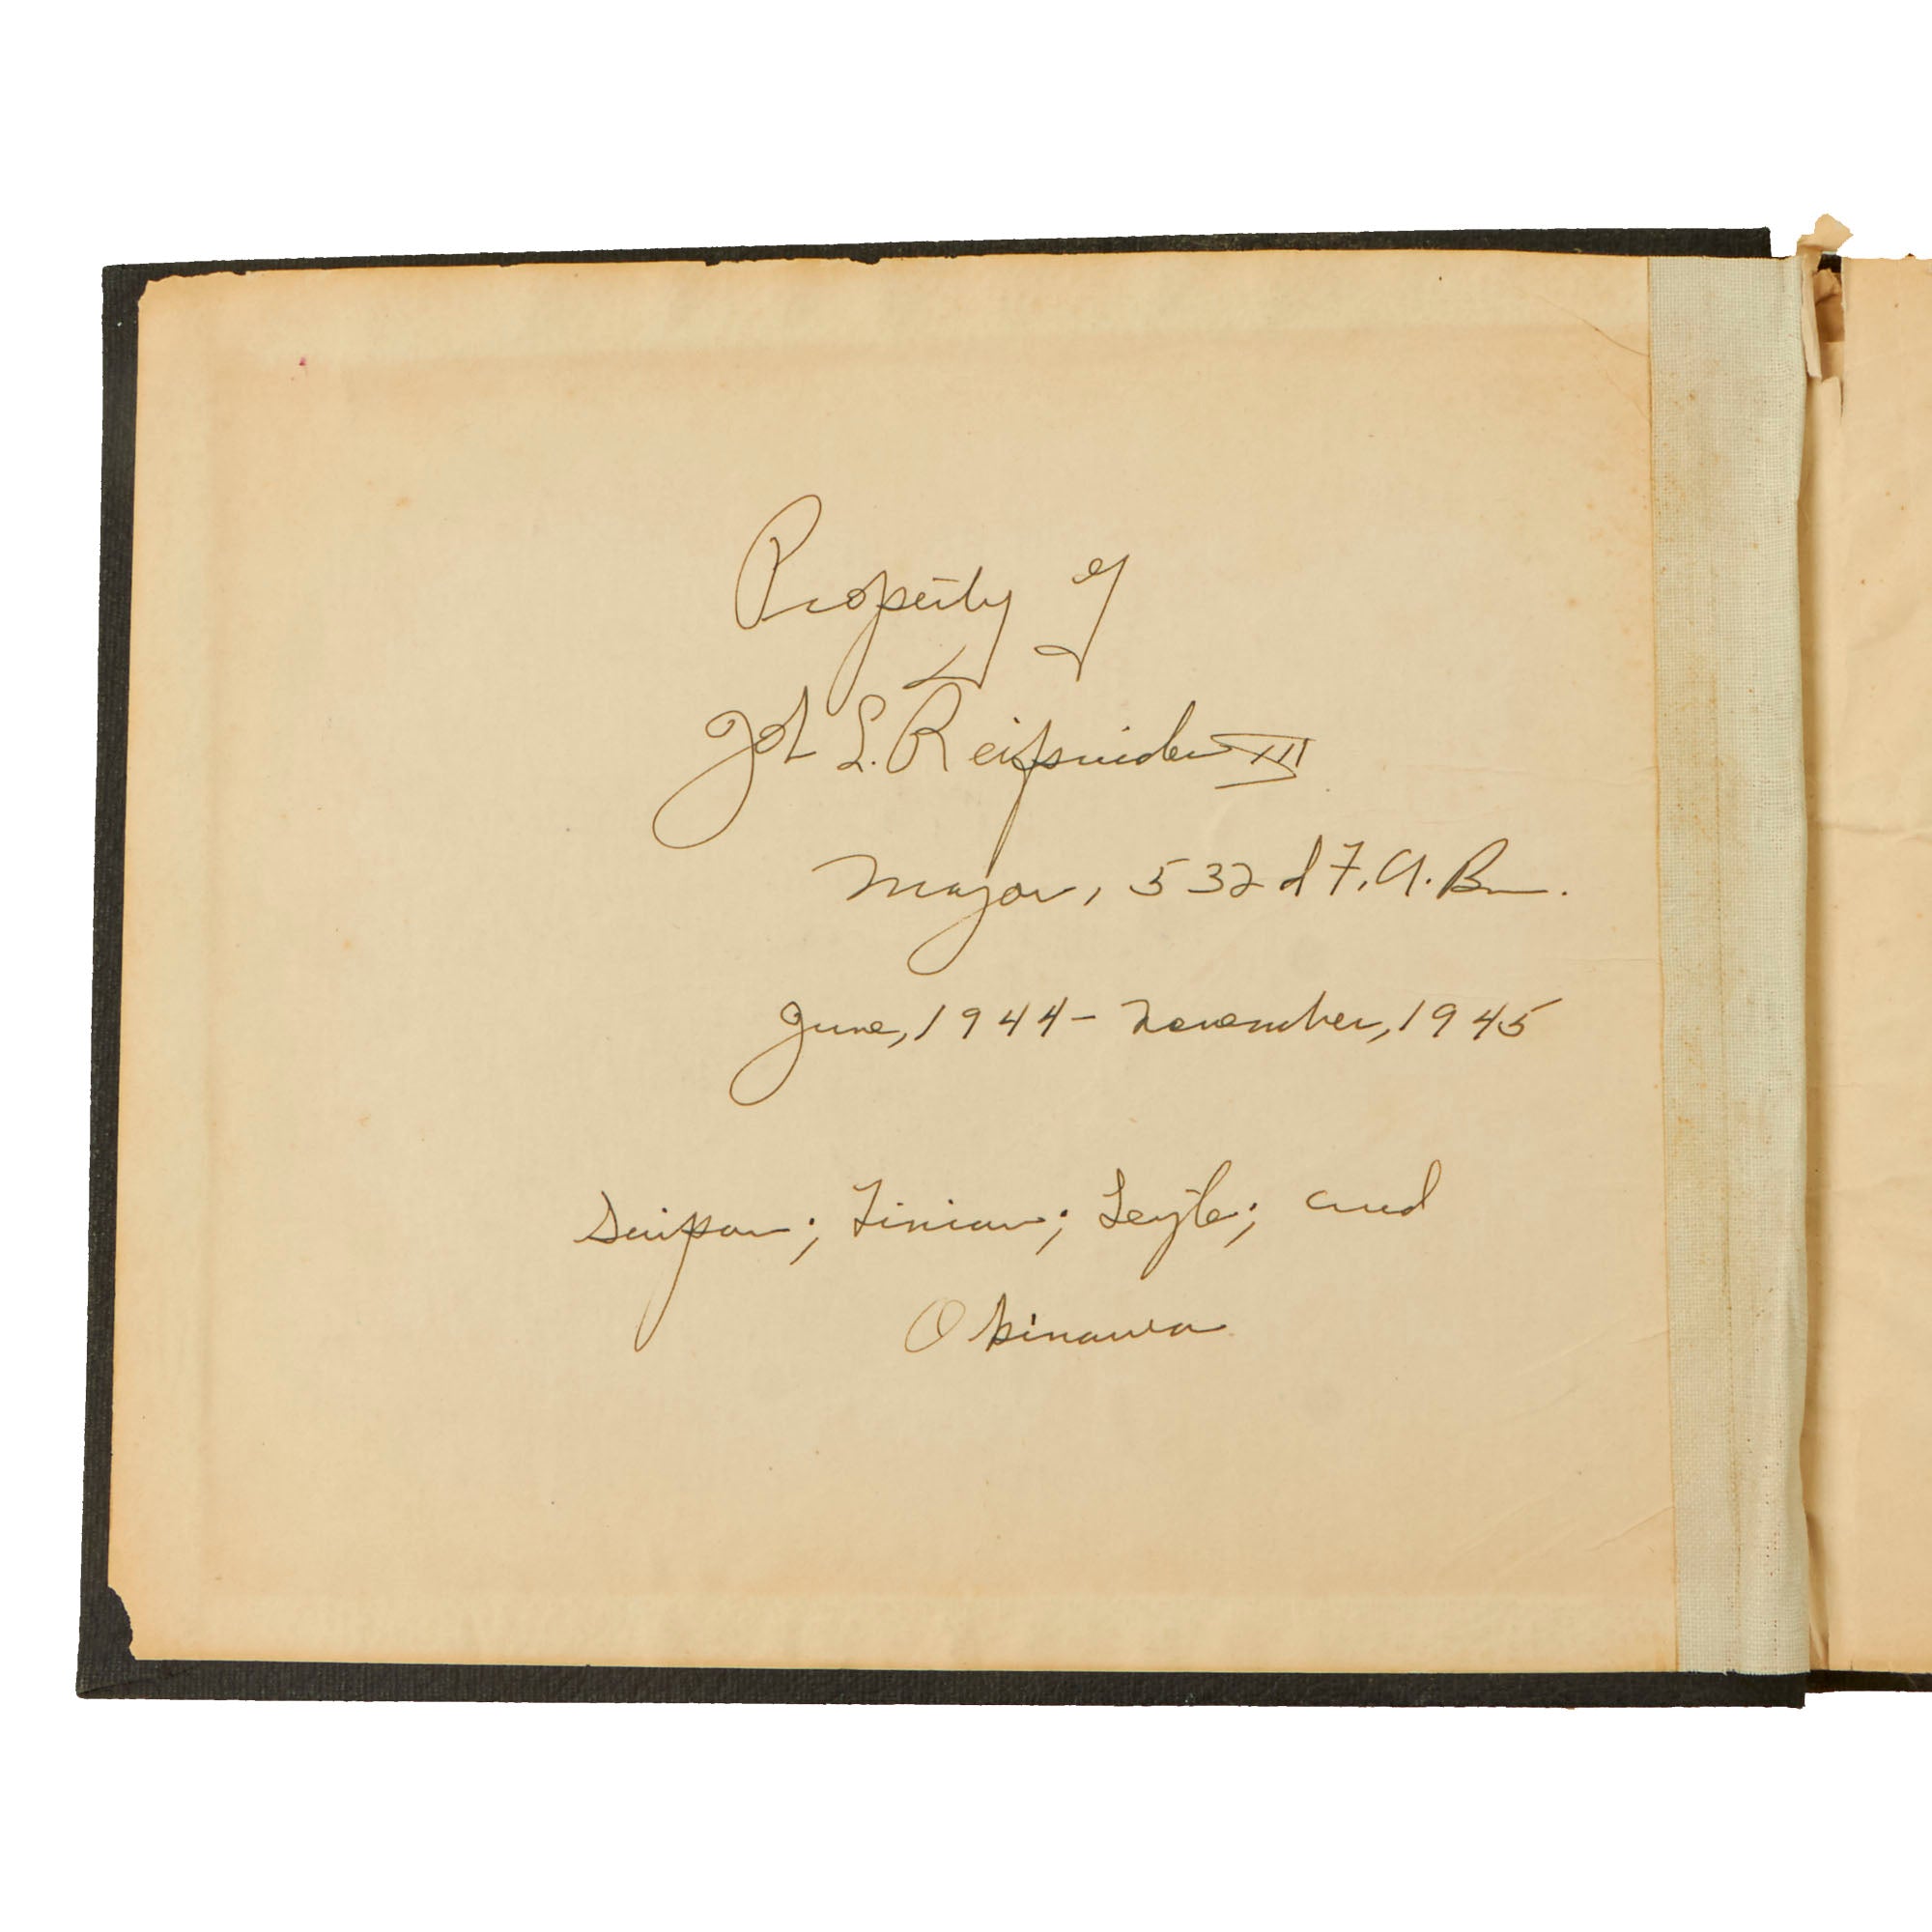 Property of
Joh L. Reifsnider III
Major, 532d F.A. Bn.
June, 1944 - November, 1945
Saipan; Tinian; Leyte; and
Okinawa